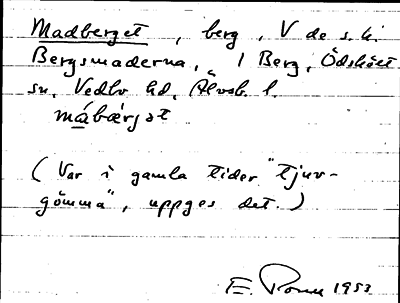 Madberget, berg, V de s. k.
Bergsmaderna, 1 Berg, Ödskölt
sn, Vedbo hd, Älvsb. l.
mábærjət
(Var i gamla tider "tjuv-
gömma", uppges det.)
E. 1953